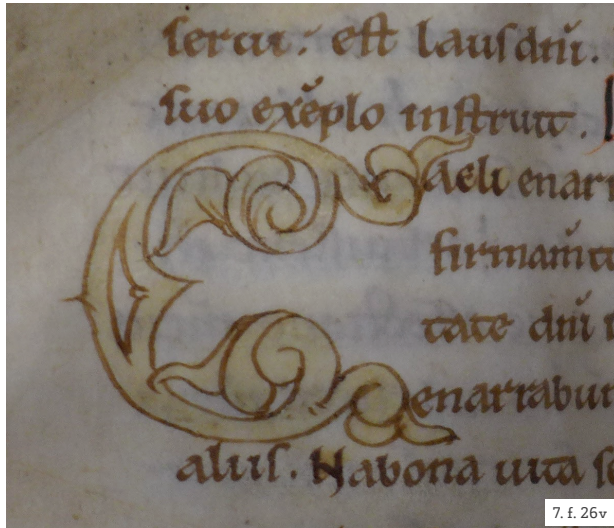 sercit. est laus diū.
suo exēplo instruit.
Caeli enarr
firmam̄
tate diū
enarrabun
aliis. Nabona uita se
7. f. 26v